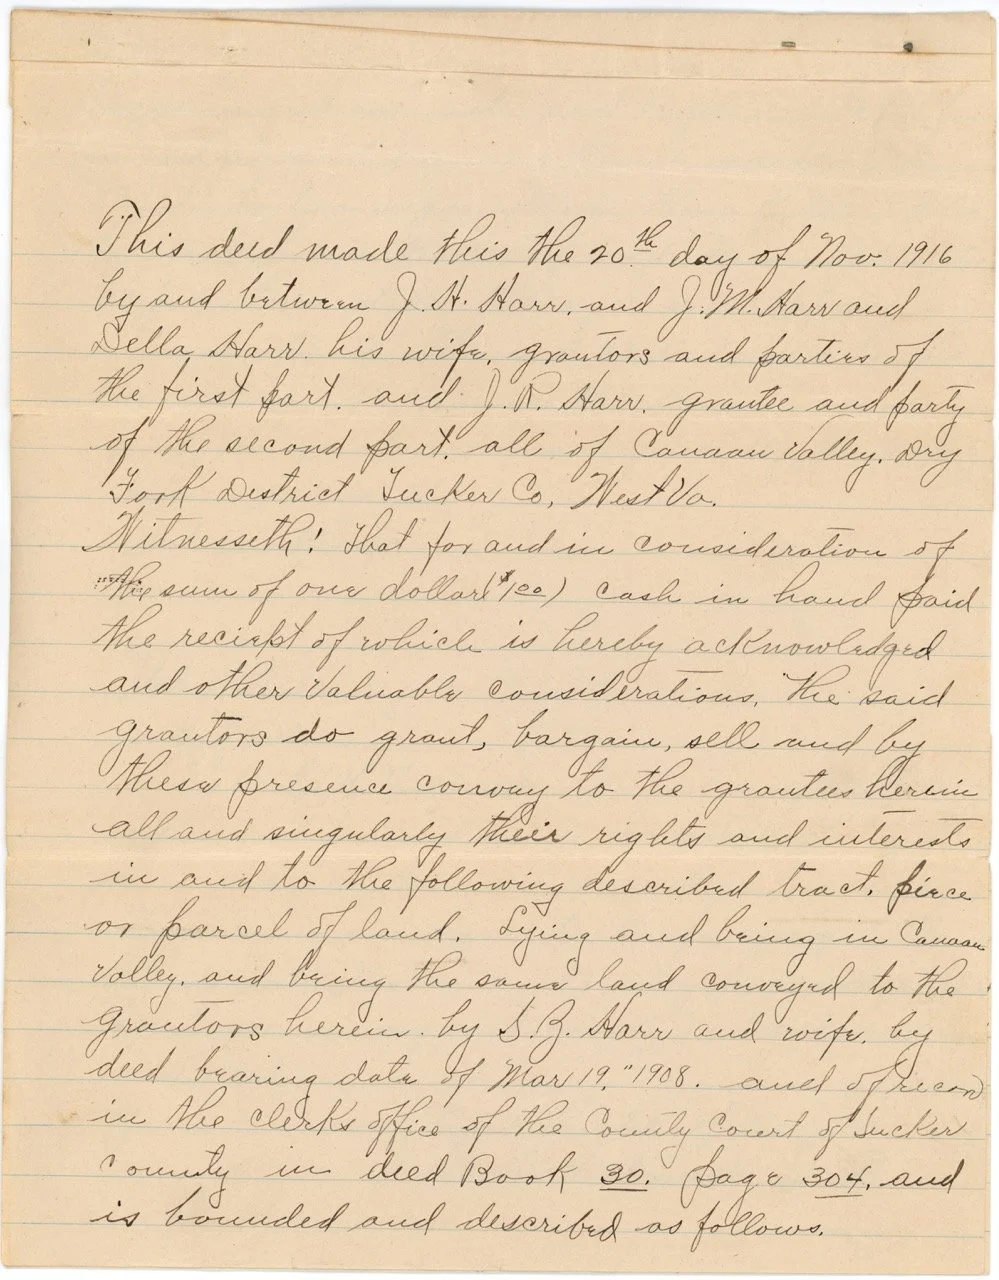 This deed made this the 20th day of Nov. 1916
by and between J. H. Harr, and J. M. Harr and
Della Harr. his wife, grantors and parties of
the first part. and J. R. Harr. grantee and party
of the second part. all of Canaan Valley. Dry
Fork District Tucker Co, West Va.
Witnesseth! That for and in consideration of
the sum of one dollar ($1.00) cash in hand paid
the reciept of which is hereby acknowledged
and other valuable considerations, the said
grantors do grant, bargain, sell and by
these presence convay to the grantees herein
all and singularly their rights and interests
in and to the following described tract. piece
or parcel of land. Lying and being in Canaan
Valley. and being the same land conveyed to the
grantors herein. by S. Z. Harr and wife. by
deed bearing date of Mar 19," 1908. and of record
in the clerks office of the County Court of Tucker
county in deed Book 30. page 304. and
is bounded and described as follows.